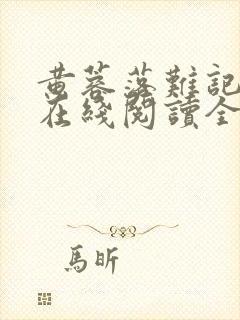 黄蓉落難記
在綫閱讀全
馬昕